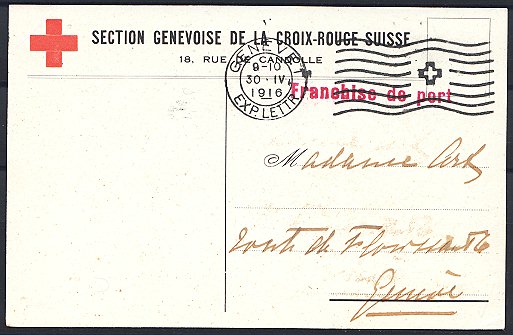 SECTION GENEVOISE DE LA CROIX-ROUGE SUISSE
18, RUE DE CANDOLLE
GENÈVE
9-10
30·IV
1916
EXP. LETTR.
Franchise de port
Madame
route de Florissant 6
Genève